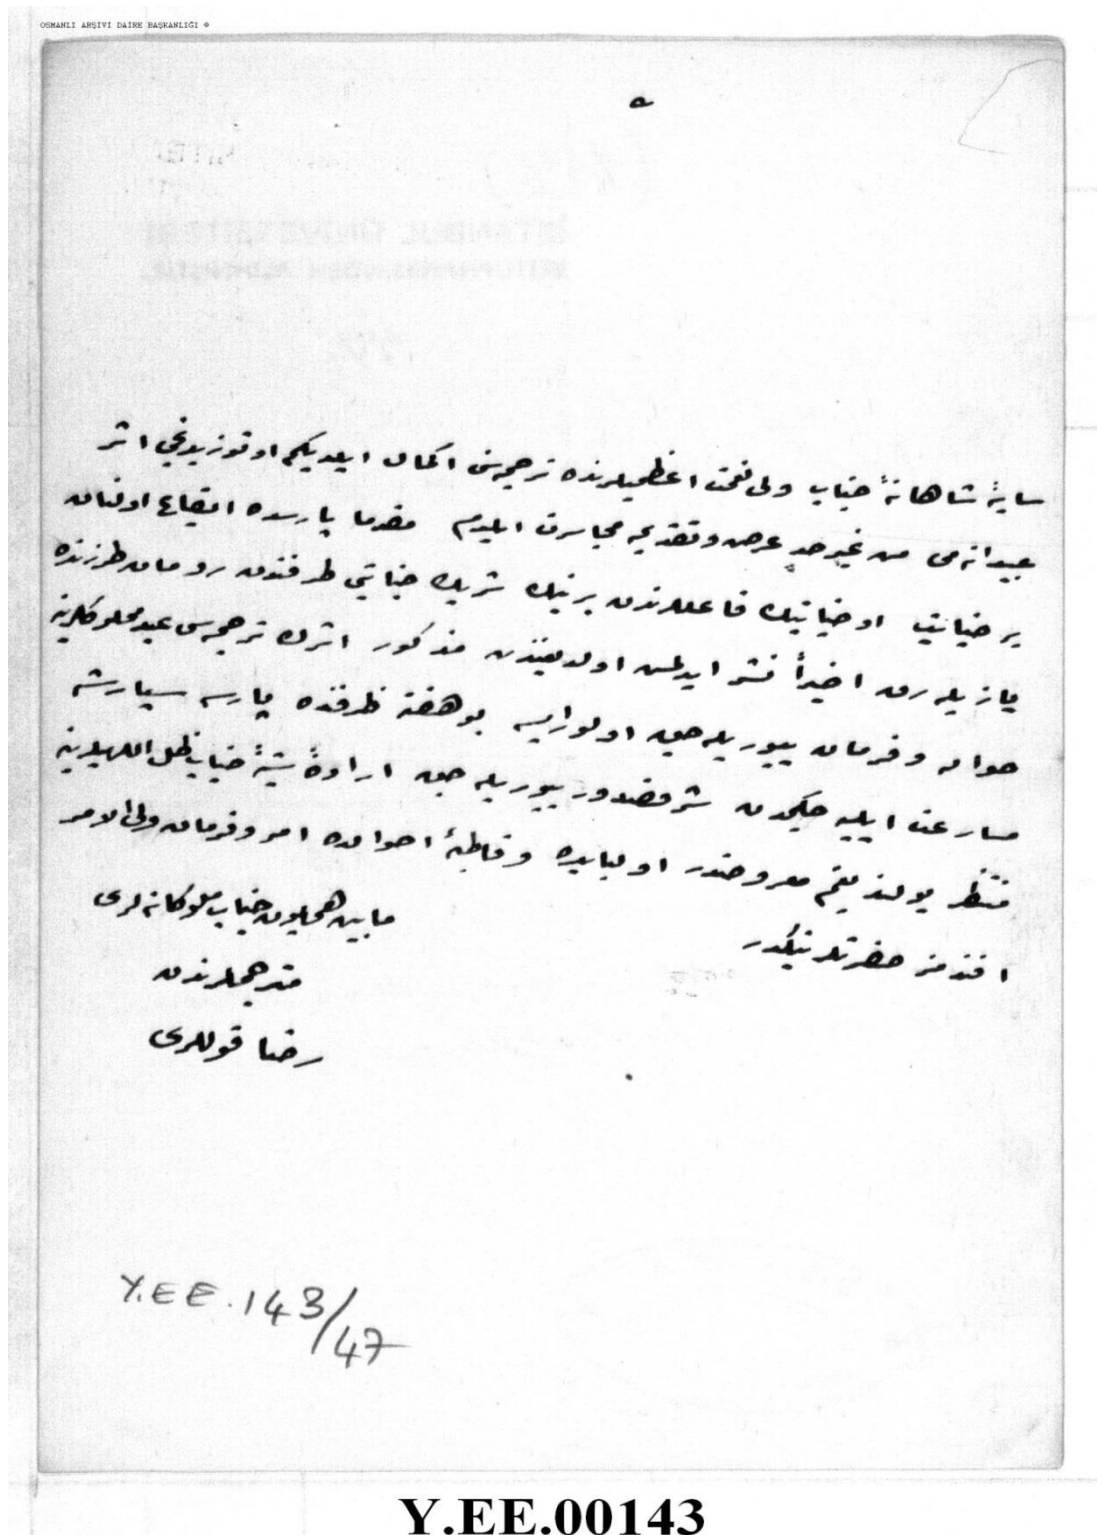 OSMANLI ARŞİVİ DAİRE BAŞKANLIĞI ©
سایهٔ شاهانهٔ جناب ولی نعمت اعظمیلرنده ترجمه‌سنی اکمال ایلدیکم اوتوز یدنجی اثر
عبیدانه‌می من غیر حد عرض و تقدیمه مجاسرت ایلدم مقدما پارسده ایقاع اولنان
بر جنایتی او جنایتك فاعللرندن برینك شریك جنایتی طرفندن رومان طرزنده
یازیله‌رق اخیراً نشر ایدلمش اولدیغندن مذکور اثرك ترجمه‌سی عبد مملوکلرینه
حواله و فرمان بیوریله‌جق اولورایسه بو هفته ظرفنده پارسه سپارشه
مسارعت ایلیه‌جکمدن شرفصدور بیوریله‌جق ارادهٔ سنیهٔ جناب ظل اللهیلرینه
منتظر بولندیغم معروضدر اولبابده و قاطبهٔ احوالده امر و فرمان ولی الامر
افندمز حضرتلرینكدر
مابین همایون جناب ملوکانه‌لری
مترجملرندن
رضا قوللری
Y.EE.143/47
Y.EE.00143